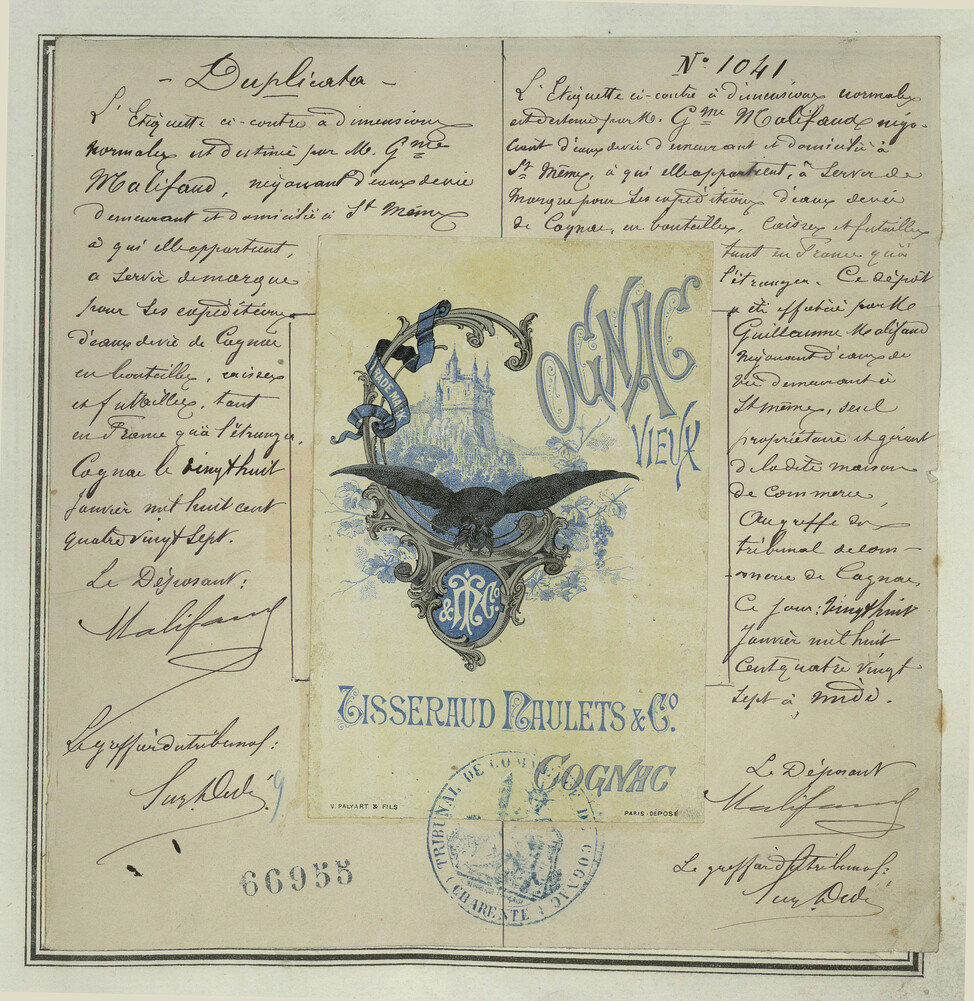 - Duplicata -
L'Etiquette ci-contre à dimensions
normales est destinée par M. Gme
Malifaud, négociant d'eaux de vie
demeurant et domicilié à St Même
à qui elle appartient,
à servir de marque
pour ses expéditions
d'eaux de vie de Cognac
en bouteilles, caisses
et futailles, tant
en France qu'à l'étranger.
Cognac le vingt huit
Janvier mil huit cent
quatre vingt sept.
Le Déposant:
Malifaud
Le greffier du tribunal:
66955
No 1041
L'Etiquette ci-contre à dimensions normales
est destinée par M. Gme Malifaud négo-
ciant d'eaux de vie demeurant et domicilié à
St Même, à qui elle appartient, à servir de
marque pour ses expéditions d'eaux de vie
de Cognac, en bouteilles, caisses et futailles
tant en France qu'à
l'étranger. Ce dépôt
a été effectué par Mr
Guillaume Malifaud
négociant d'eaux de
vie demeurant à
St Même, seul
propriétaire et gérant
de la dite maison
de commerce,
Au greffe du
tribunal de com-
merce de Cognac
Ce jour: vingt huit
Janvier mil huit
cent quatre vingt
sept à midi.
Le Déposant
Malifaud
Le greffier du tribunal:
COGNAC
VIEUX
TRADE MARK
& Co.
TISSERAUD NAULETS & Co.
COGNAC
V. PALYART & FILS
PARIS-DÉPOSÉ
TRIBUNAL DE COMMERCE DE COGNAC
(CHARENTE)